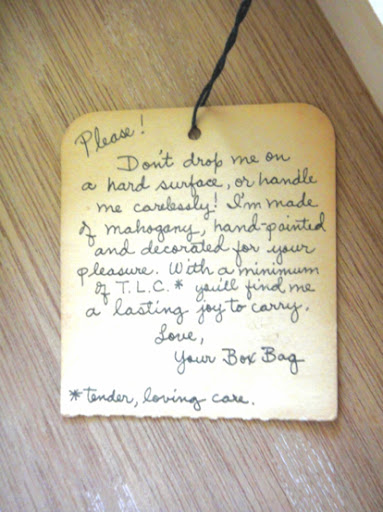 Please!
Don't drop me on
a hard surface, or handle
me carelessly! I'm made
of mahogany, hand-painted
and decorated for your
pleasure. With a minimum
of T.L.C.* you'll find me
a lasting joy to carry.
Love,
Your Box Bag
*tender, loving care.